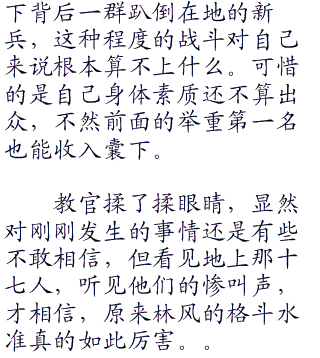 下背后一群趴倒在地的新
兵，这种程度的战斗对自己
来说根本算不上什么。可惜
的是自己身体素质还不算出
众，不然前面的举重第一名
也能收入囊下。
教官揉了揉眼睛，显然
对刚刚发生的事情还是有些
不敢相信，但看见地上那十
七人，听见他们的惨叫声，
才相信，原来林风的格斗水
准真的如此厉害。。